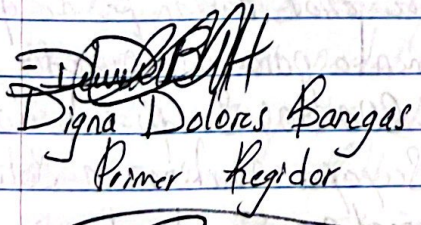 Digna Dolores Banegas
Primer Regidor